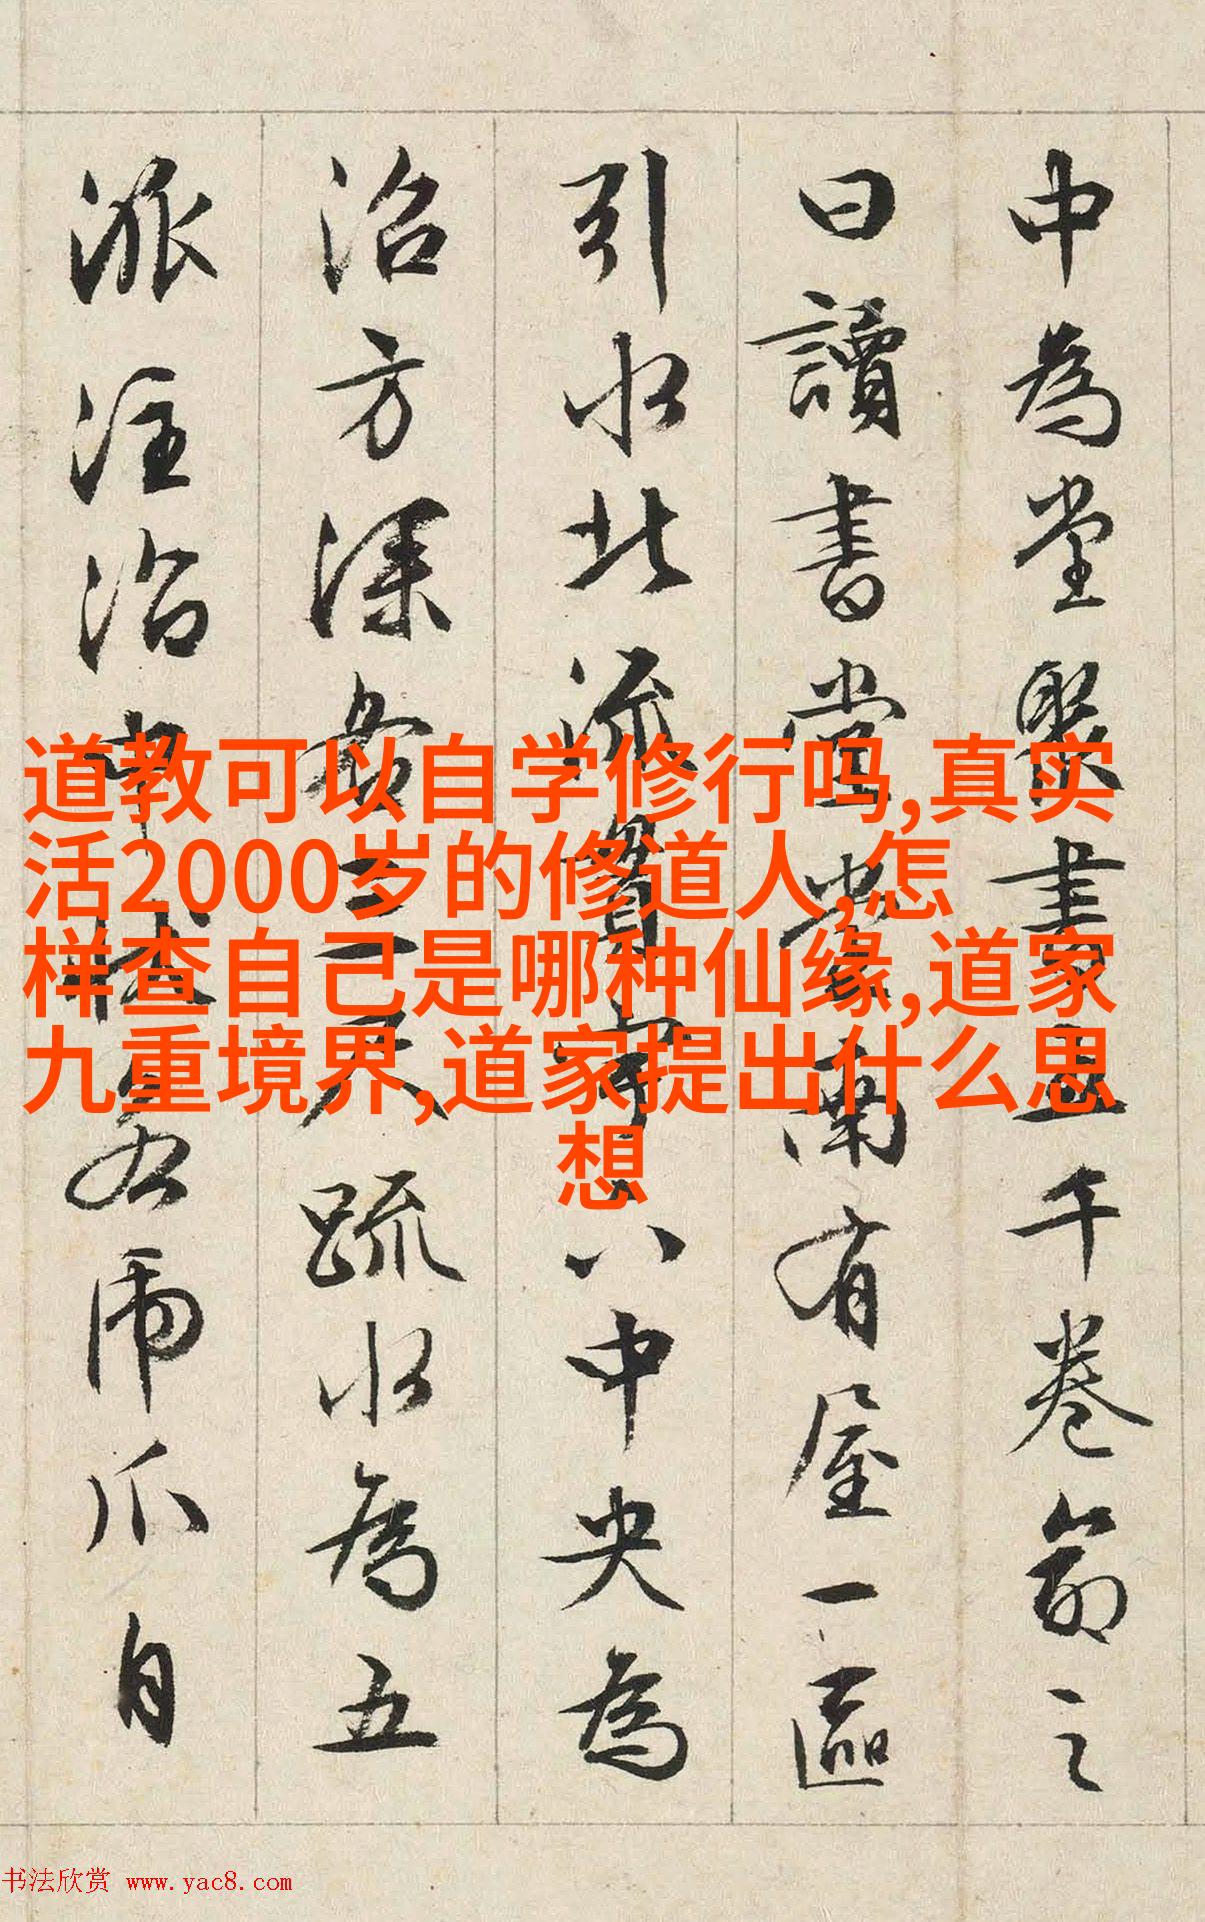 中為堂聚書五千卷命之
曰讀書堂堂南有屋一區
引水北流貫宇下中央為
沼方深各三尺疏水為五
派注沼中狀若虎爪自
道教可以自学修行吗,真实
活2000岁的修道人,怎
样查自己是哪种仙缘,道家
九重境界,道家提出什么思
想
书法欣赏 www.yac8.com